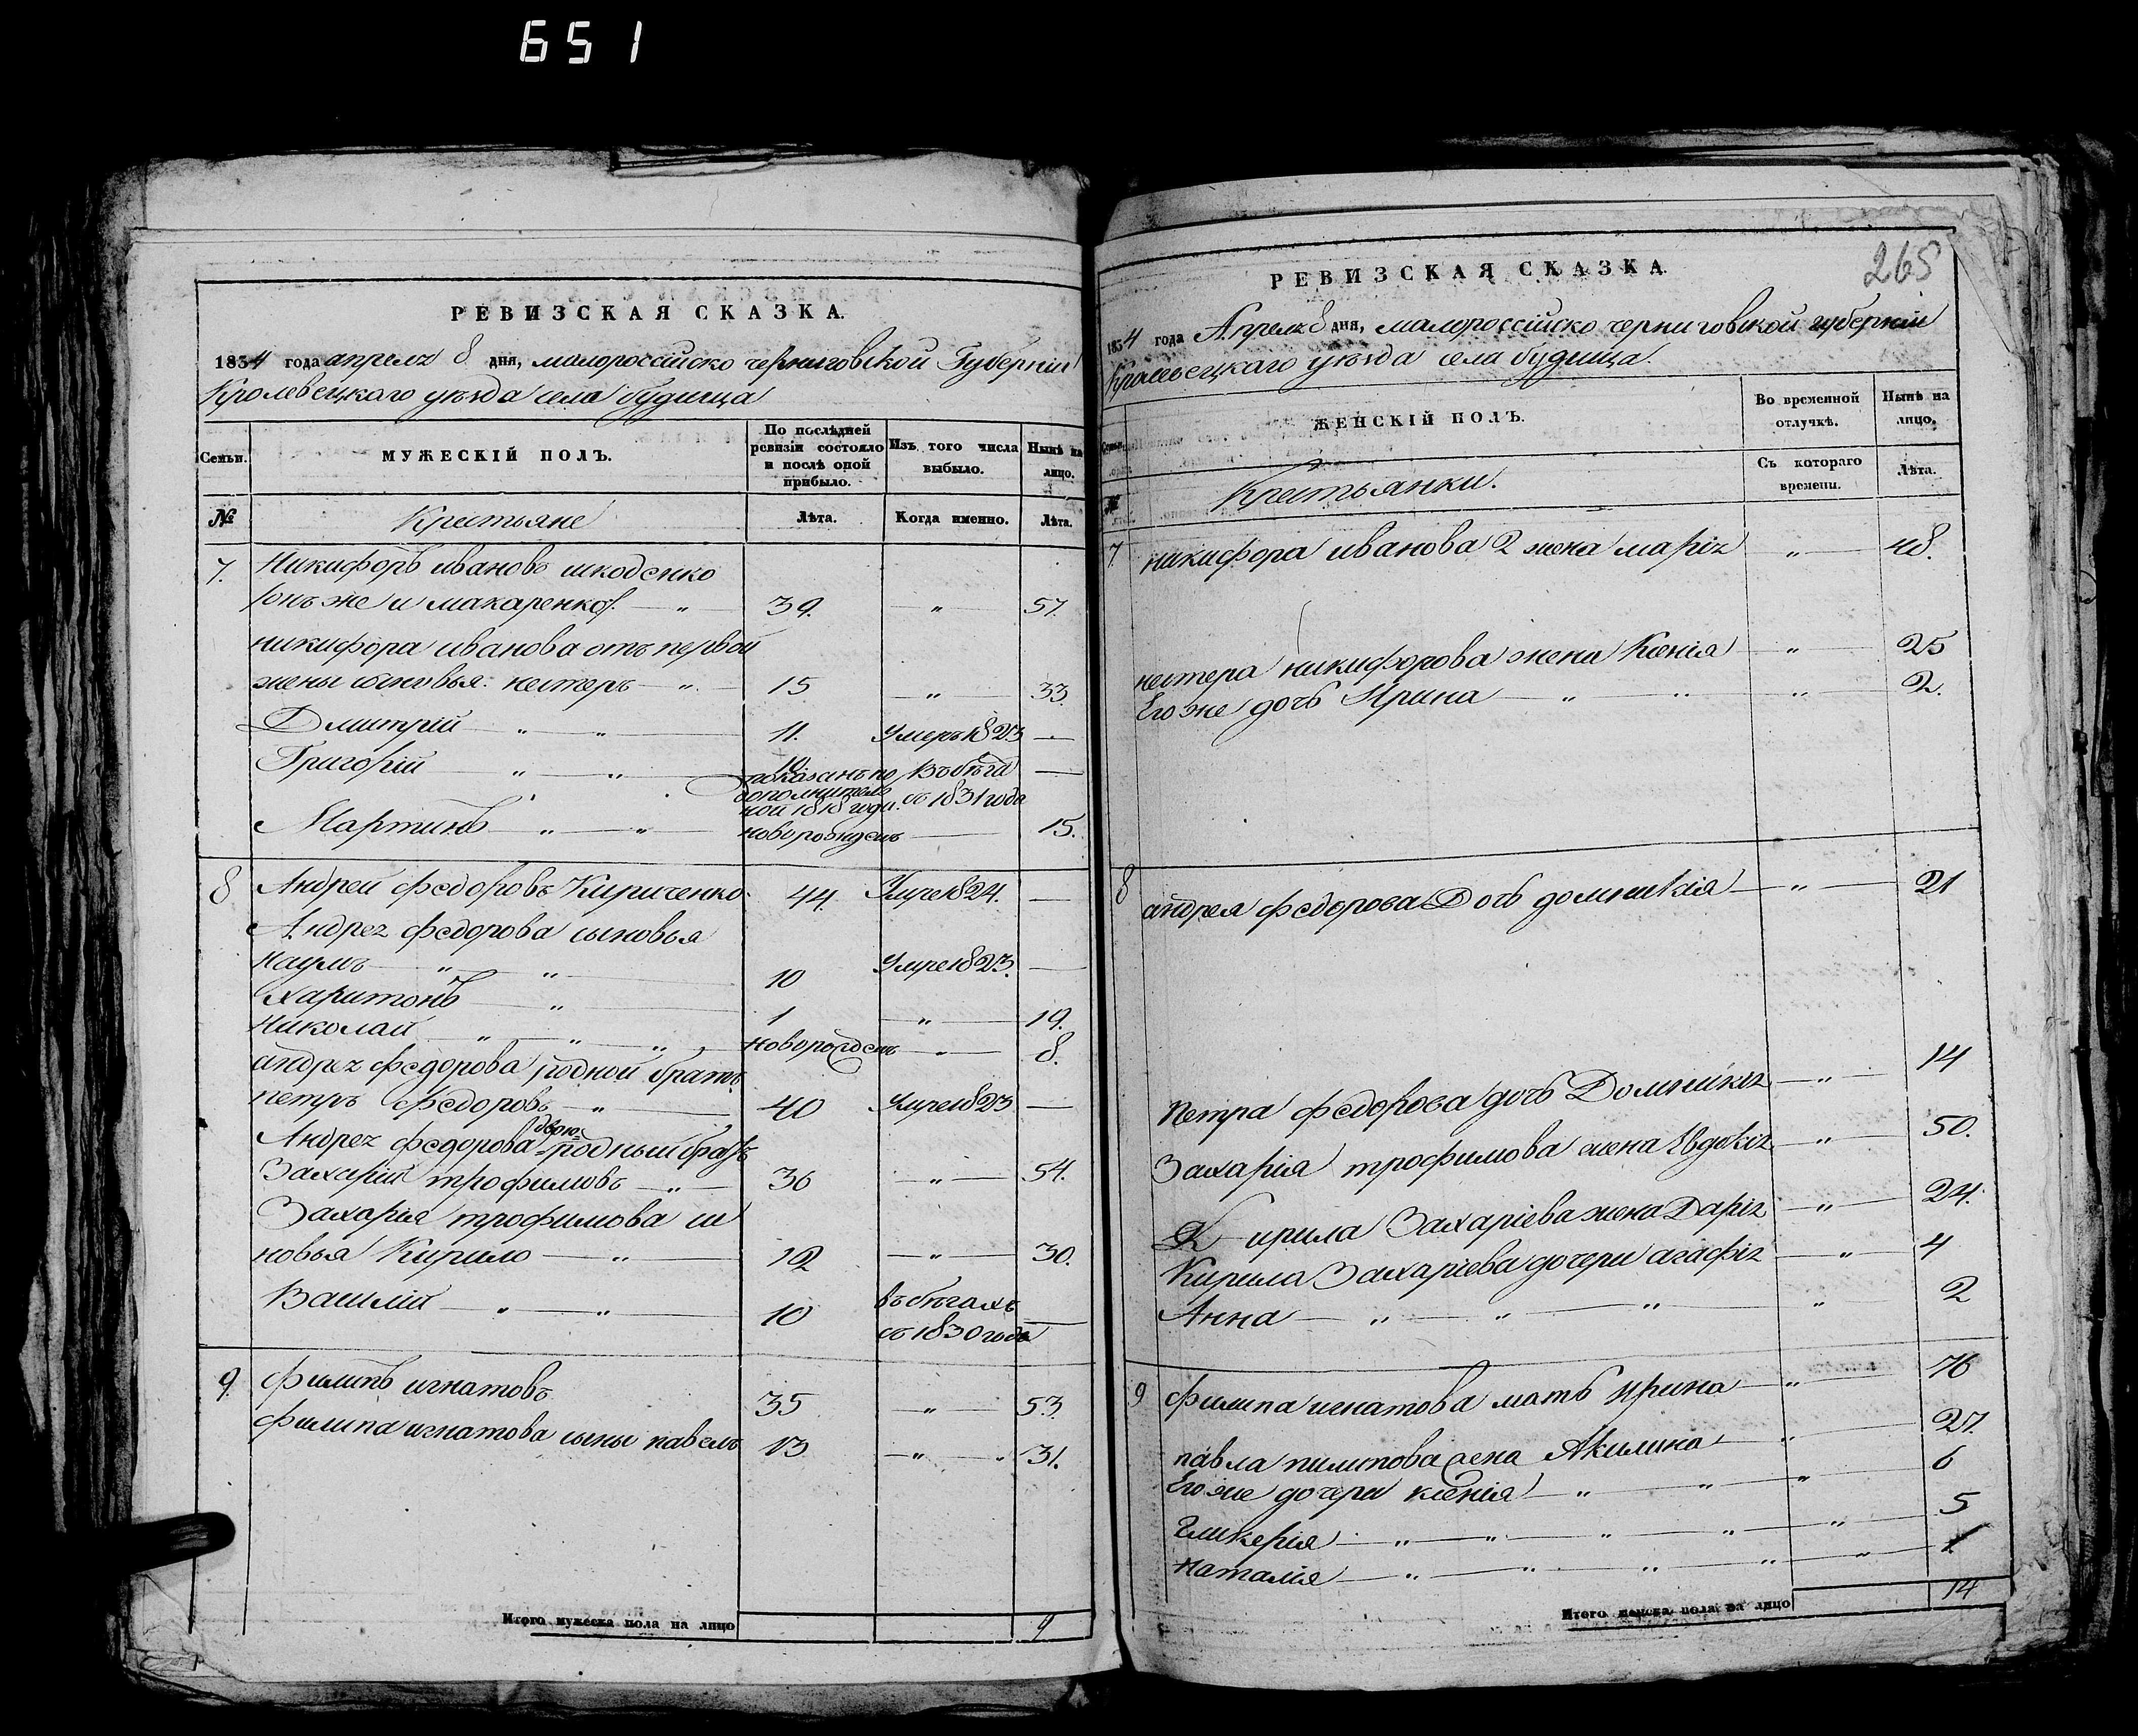 651
РЕВИЗСКАЯ СКАЗКА.
1834 года апреля 8 дня, малороссійско черниговской Губерніи
Кролевецкаго уезда села будища
Семьи.
МУЖЕСКІЙ ПОЛЪ.
По послѣдней ревизіи состояло и послѣ оной прибыло.
Изъ того числа выбыло.
Нынѣ на лицо.
№ Крестьяне Лѣта. Когда именно. Лѣта.
7. Никифоръ ивановъ шкоденко
онъ же и макаренко — „ — 39. — „ — 57.
никифора иванова отъ первой
жены сыновья: нестеръ — „ — 15 — „ — 33.
Дмитрій — „ — „ — 11. Умеръ 1823 —
Григорій — „ — „ — 10 показанъ по дополнительной 1818 году. Въ бѣга съ 1831 года —
Мартинъ — „ — „ — новорожденъ — 15.
8 Андрей федоровъ Кириченко 44. Умре 1824. —
Андрея федорова сыновья
наумъ — „ — „ — 10 Умре 1823. —
Харитонъ — „ — 1 — „ — 19.
Николай — „ — „ — „ новорожденъ — „ — 8.
андрея федорова родной братъ
петръ федоровъ — „ — 40 Умре 1823 —
Андрея федорова двоюродный братъ
Захарій трофимовъ — „ — 36 — „ — 54.
Захарія трофимова сы
новья Кирило — „ — 12 — „ — 30.
Василій — „ — „ — 10 въ бѣгахъ —
съ 1830 года
9. филипъ игнатовъ 35 — „ — 53.
филипа игнатова сыны павелъ 13 — „ — 31.
Итого мужеска пола на лицо 9
265
РЕВИЗСКАЯ СКАЗКА.
1834 года Апреля 8 дня, малороссійско черниговской губерніи
Кролевецкаго уѣзда села будища.
Семьи.
ЖЕНСКІЙ ПОЛЪ.
Во временной отлучкѣ.
Нынѣ на лицо.
№ Крестьянки.
Съ котораго времени.
Лѣта.
7. никифора иванова 2 жена марія „ — 48.
нестера никифорова жена Ксенія — „ — 25
Его же дочь Ирина — „ — „ — „ — 2.
8 андрея федорова Дочь домникія — „ — 21
петра федорова дочь Домникія — „ — 14
Захарія трофимова жена Евдокія — „ — 50.
Кирила Захаріева жена Дарія — „ — 24.
Кирила Захаріева дочери агафія — „ — 4
Анна — „ — „ — „ — „ 2
9 филипа игнатова мать Ирина — „ — 76
павла пилипова жена Акилина — „ — 27.
Его же дочери ксенія — „ — „ — „ — 6
Гликерія — „ — „ — „ — „ — „ — 5
наталія — „ — „ — „ — „ — „ — 1.
Итого женска пола на лицо 14